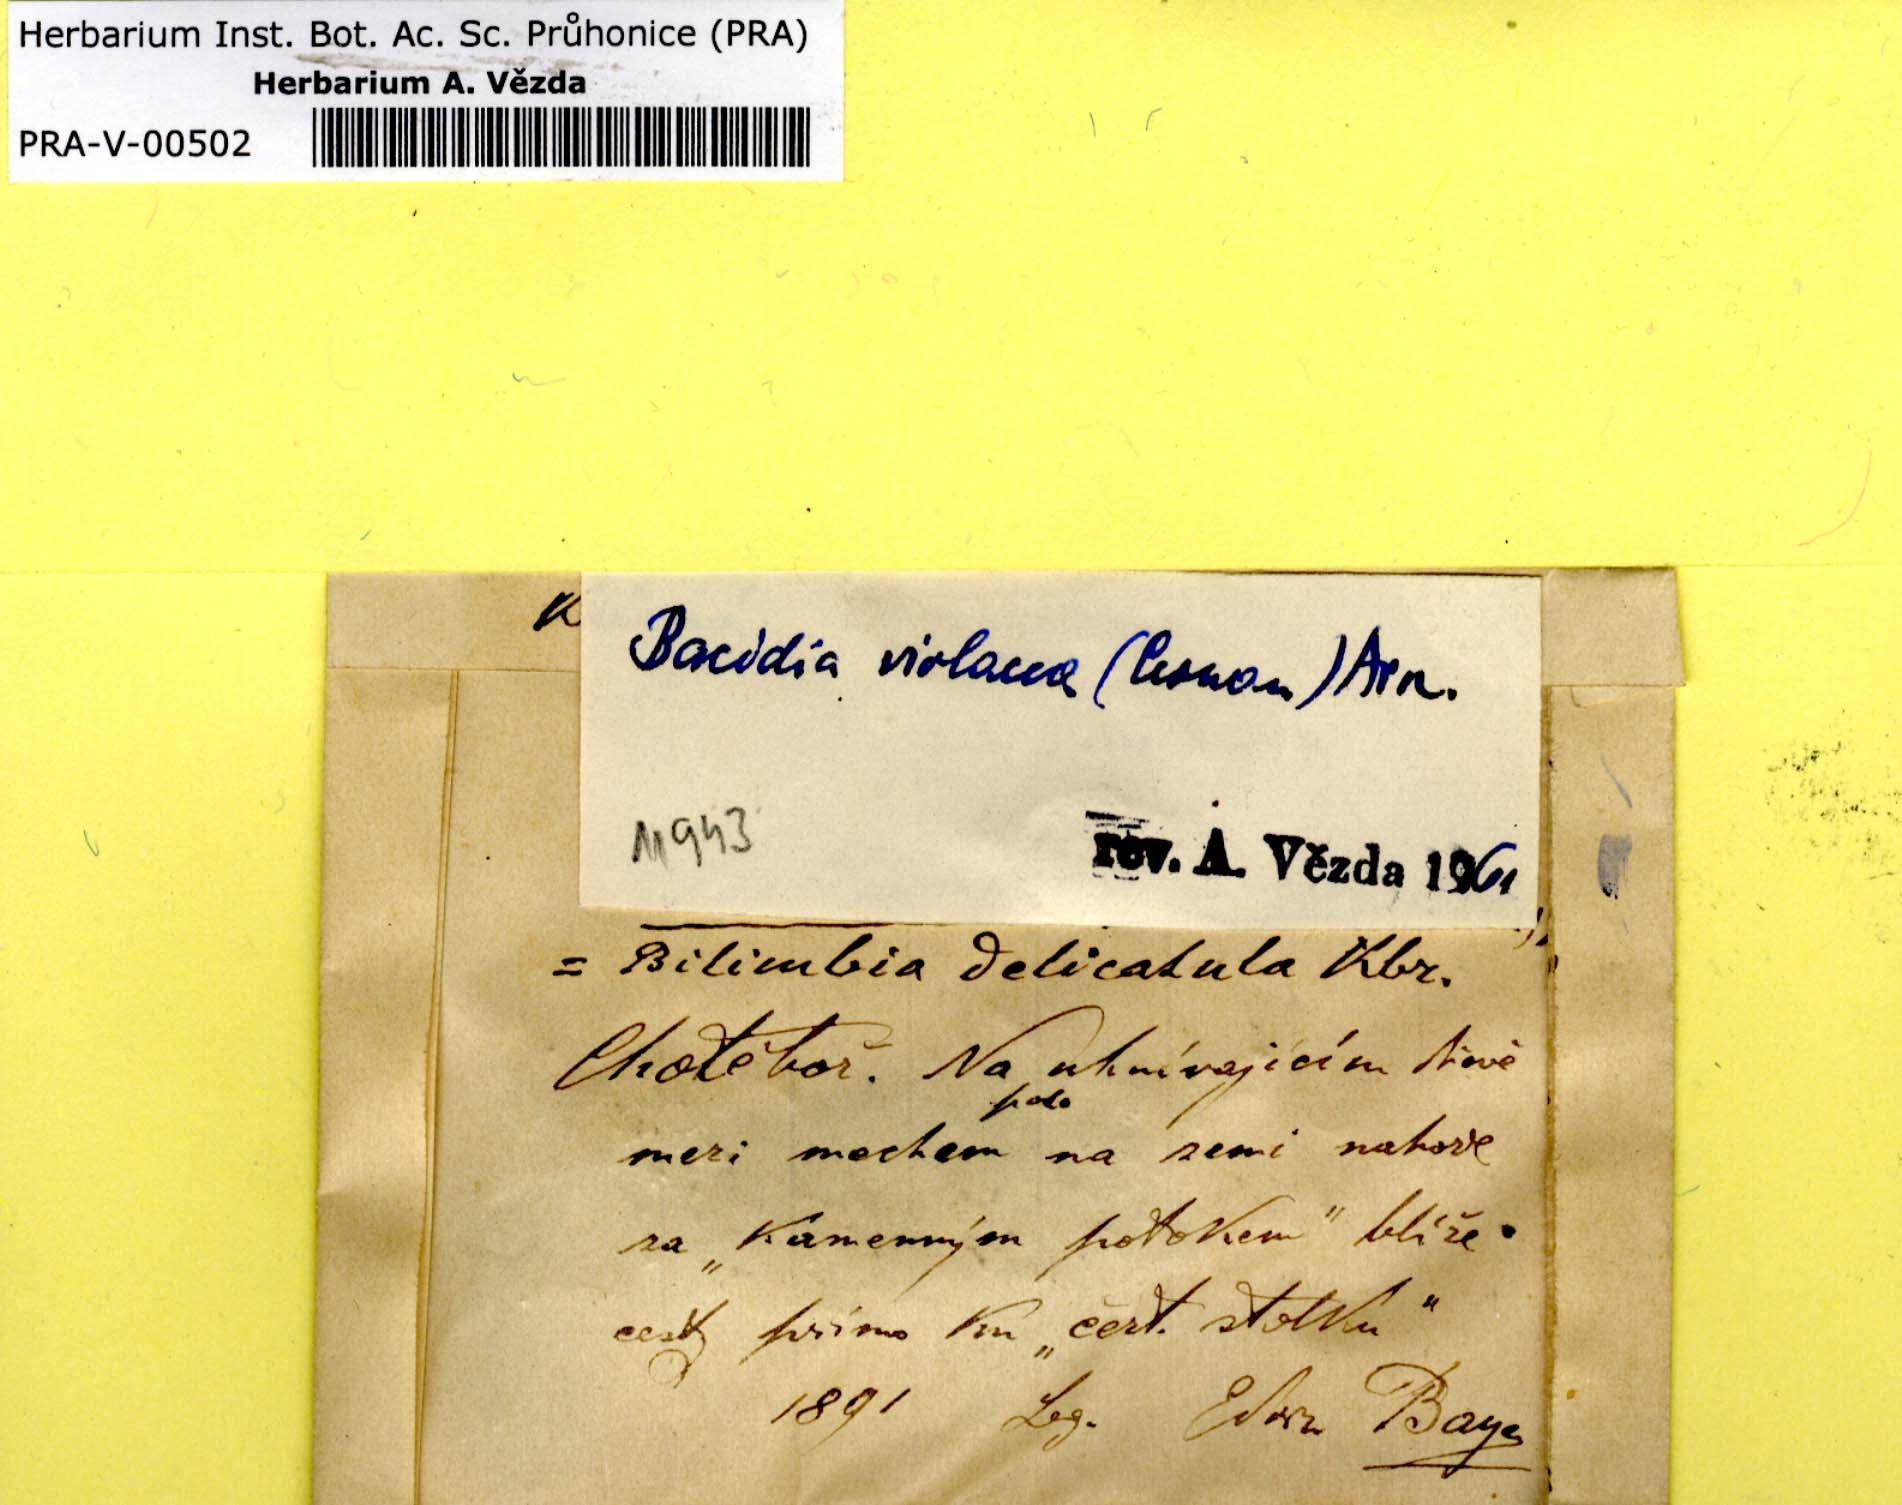 Herbarium Inst. Bot. Ac. Sc. Průhonice (PRA)
Herbarium A. Vězda
PRA-V-00502
K
Bacidia violacea (Crouan) Arn.
11943
rev. A. Vězda 1961
= Bilimbia delicatula Kbr.
Chotěboř. Na uhnívajícím dřevě
pod
mezi mechem na zemi nahoře
za „Kamenným potokem" blíže
cesty přímo ku „čert. stolku"
1891 Leg. Edwin Bayer